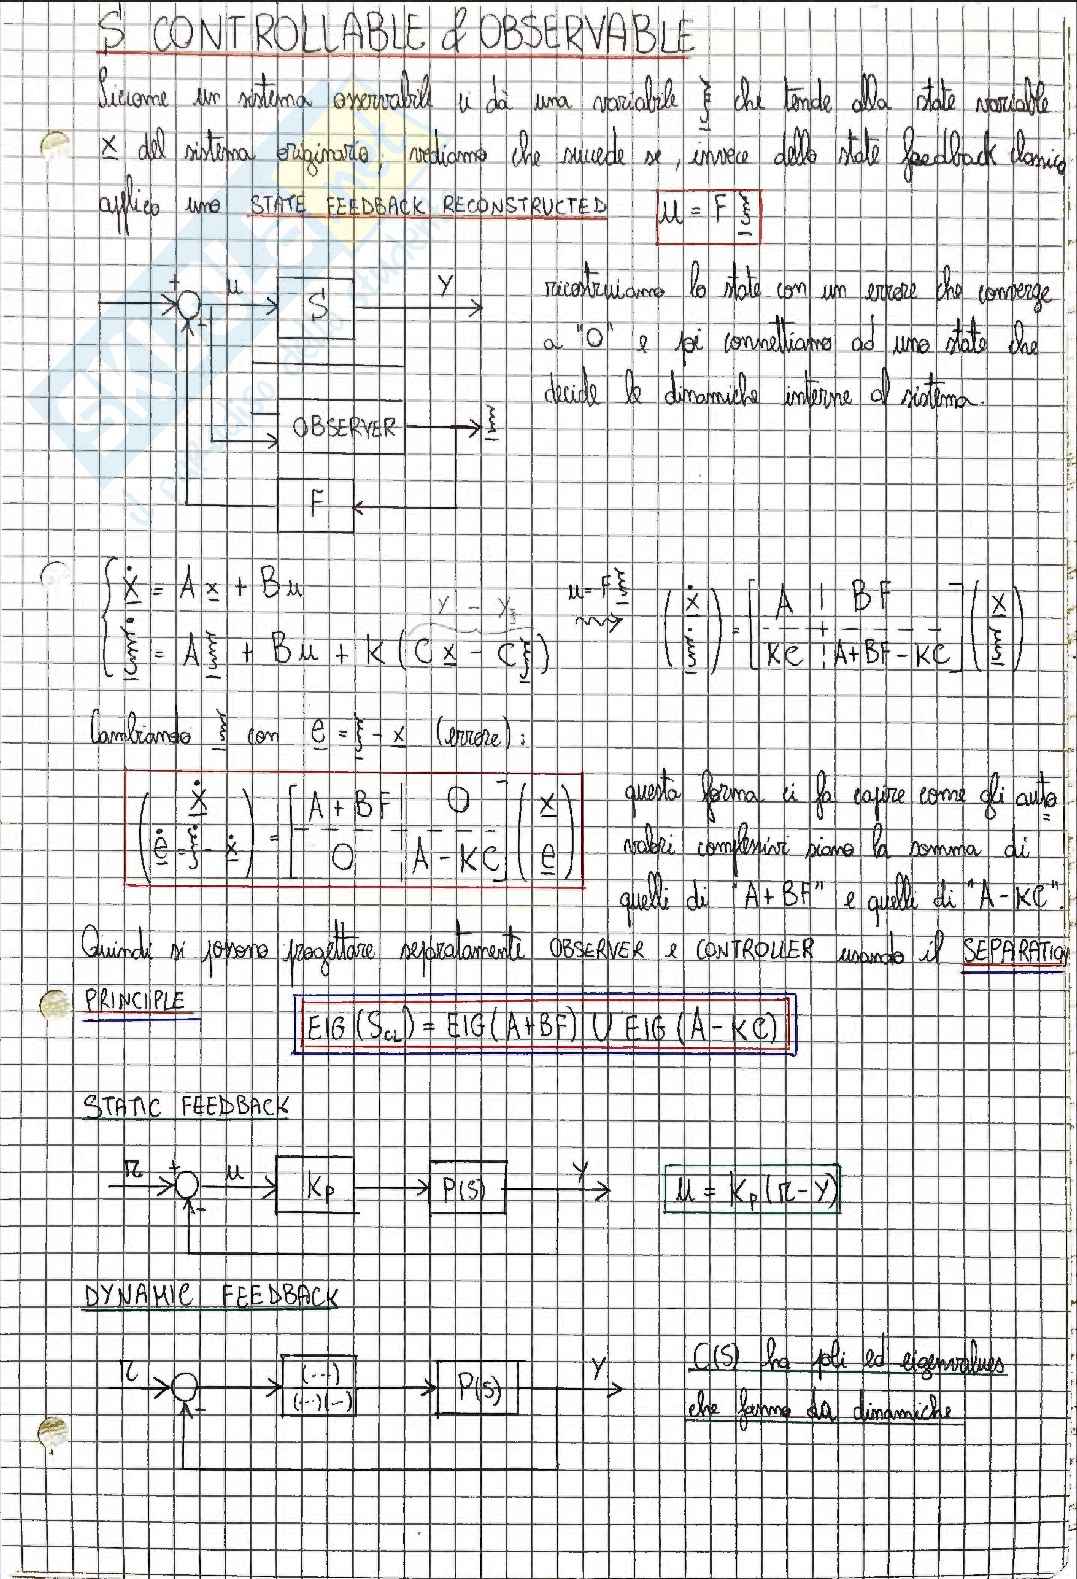 S CONTROLLABLE & OBSERVABLE
Siccome un sistema osservabile ci dà una variabile ξ che tende alla state variable
x del sistema originario, vediamo che succede se, invece dello state feedback classico
applico uno STATE FEEDBACK RECONSTRUCTED u = F ξ
+ u S Y
-
OBSERVER ξ
F
ricostruiamo lo state con un errore che converge
a "0" e poi connettiamo ad uno state che
decide le dinamiche interne al sistema.
ẋ = A x + B u
ξ̇ = A ξ + B u + K (C x - C ξ)
y - y_ξ
u = F ξ
(ẋ ξ̇) = [A | BF ; KC | A+BF-KC] (x ξ)
Cambiando ξ con e = ξ - x (errore):
(ẋ ; ė = ξ̇ - ẋ) = [A + BF | 0 ; 0 | A - KC] (x e)
questa forma ci fa capire come gli auto
valori complessivi siano la somma di
quelli di "A+BF" e quelli di "A-KC".
Quindi si possono progettare sepratamente OBSERVER e CONTROLLER usando il SEPARATION
PRINCIPLE
EIG (S_CL) = EIG (A+BF) U EIG (A-KC)
STATIC FEEDBACK
r + u Kp P(S) Y
-
u = Kp (r - y)
DYNAMIC FEEDBACK
r (...) P(S) Y
(...)(...)
-
C(S) ha poli ed eigenvalues
che fanno da dinamiche